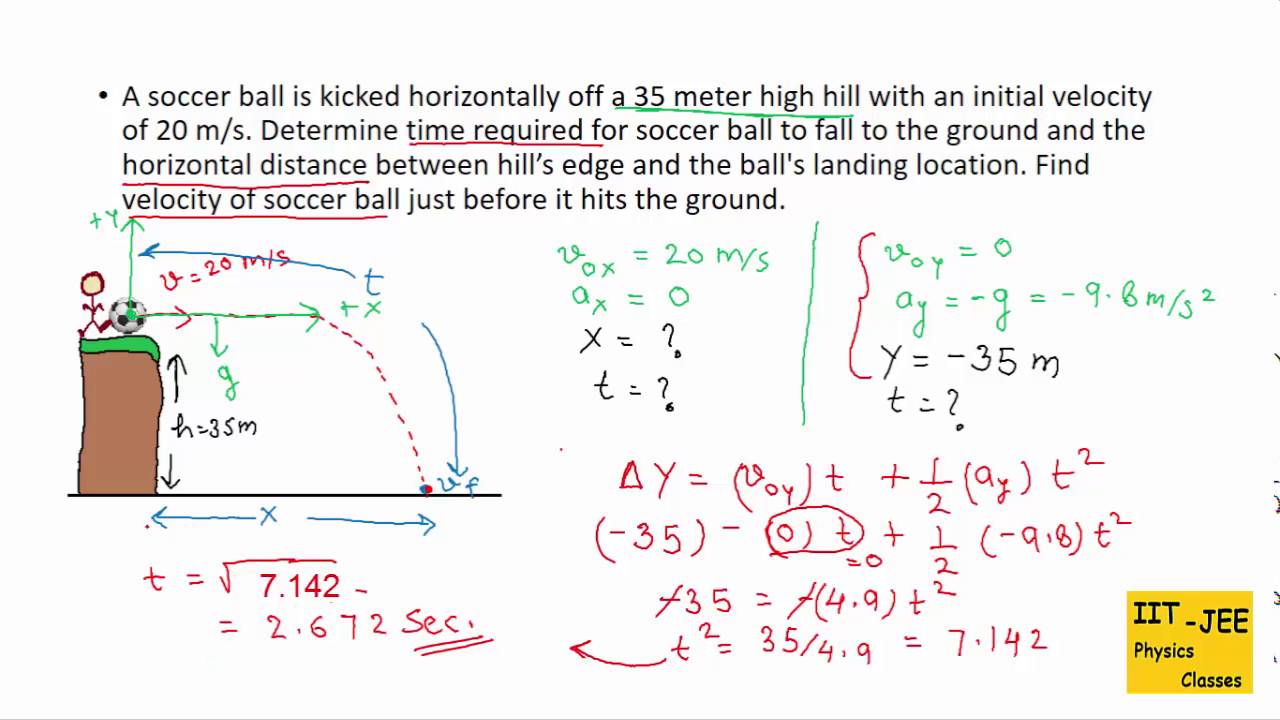 • A soccer ball is kicked horizontally off a 35 meter high hill with an initial velocity
of 20 m/s. Determine time required for soccer ball to fall to the ground and the
horizontal distance between hill's edge and the ball's landing location. Find
velocity of soccer ball just before it hits the ground.
+Y
v = 20 m/s
t
+x
g
h=35m
vf
x
t = √7.142 -
= 2.672 Sec.
vox = 20 m/s
ax = 0
x = ?
t = ?
voy = 0
ay = -g = -9.8 m/s²
Y = -35 m
t = ?
ΔY = (voy) t + 1/2 (ay) t²
(-35) - (0) t + 1/2 (-9.8) t²
=0
-35 = -(4.9) t²
t² = 35/4.9 = 7.142
IIT-JEE
Physics
Classes